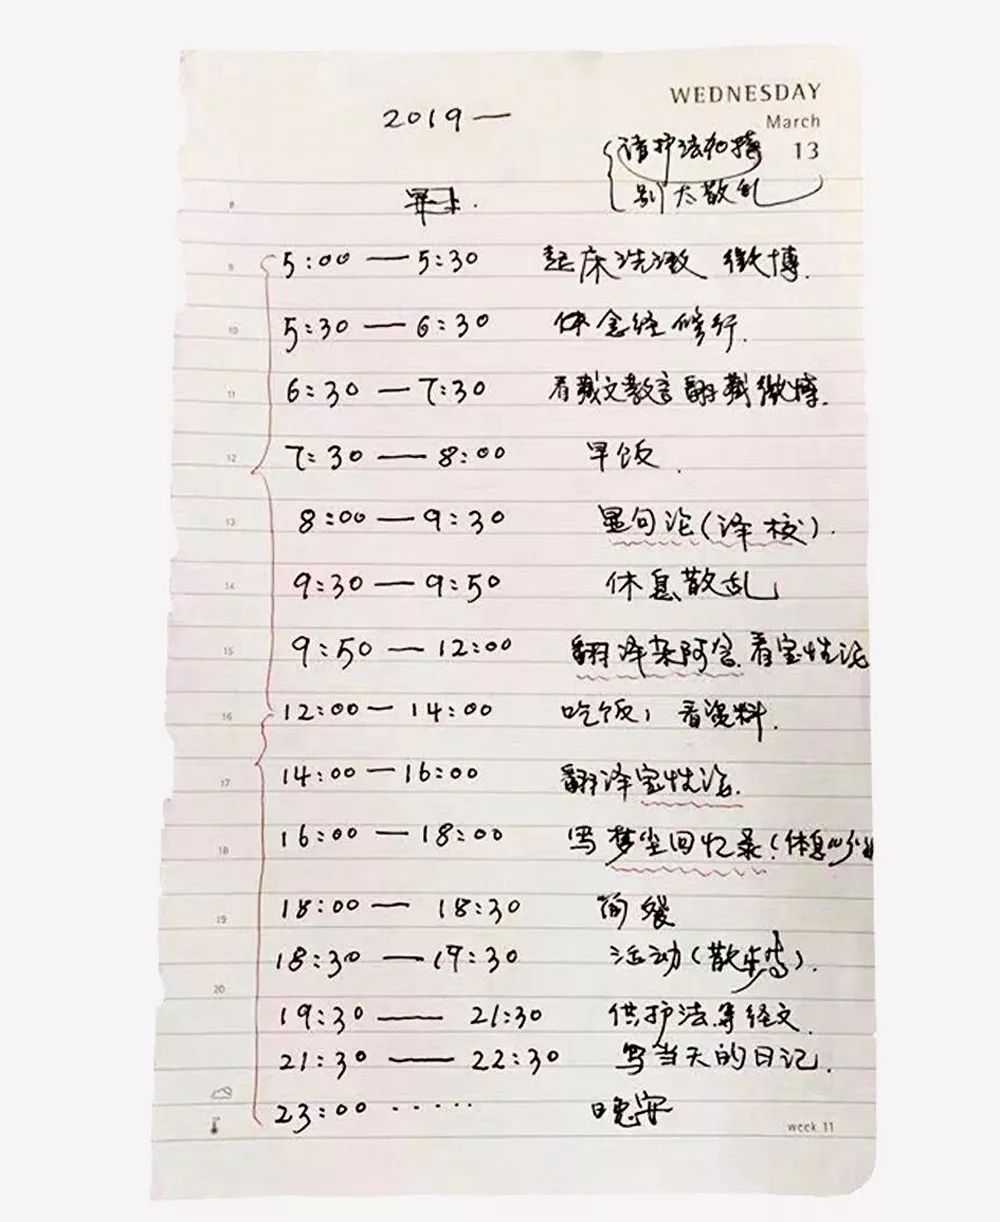 WEDNESDAY
2019一
March
13
请护法加持
别太散乱
8
9 5:00 — 5:30 起床洗漱 微博.
10 5:30 — 6:30 念经修行.
11 6:30 — 7:30 看藏文教言 翻藏微博.
12 7:30 — 8:00 早饭.
13 8:00 — 9:30 显句论(译校).
14 9:30 — 9:50 休息散乱
15 9:50 — 12:00 翻译杂阿含.看宝性论
16 12:00 — 14:00 吃饭, 看资料.
17 14:00 — 16:00 翻译宝性论.
18 16:00 — 18:00 写梦尘回忆录(休息
19 18:00 — 18:30 简餐
18:30 — 19:30 活动(散步等).
20
19:30 — 21:30 供护法等经文.
21:30 — 22:30 写当天的日记.
23:00 ····· 晚安
week 11